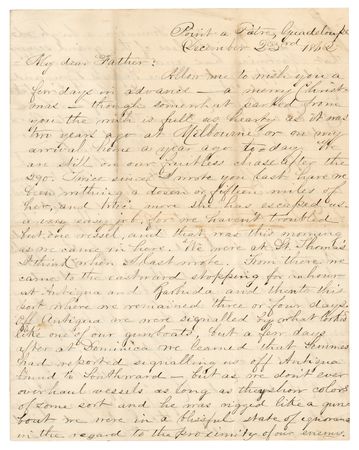 Point a Pitre, Guadeloupe
December 23rd 1862
My dear Father:
Allow me to wish you a
few days in advance — a merry Christ-
mas — though somewhat parted from
you the wish is full as hearty as it was
two years ago at Melbourne or on my
arrival home a year ago today. We
are still on our fruitless chase after the
290. Twice since I wrote you last have we
been within a dozen or fifteen miles of
her, and twice more she has escaped us.
a very easy job, for we haven't troubled
but one vessel, and that was this morning
as we came in here. We were at St. Thomas
I think when I last wrote. From there we
came to the eastward stopping for an hour
at Antigua and Barbuda and thence to this
port where we remained three or four days.
Off Antigua we were signalled by what looked
like one of our gunboats, but a few days
after at Dominica we learned that
had reported signalling us off Antigua
bound to Southward — but as we don't ever
overhaul vessels as long as they show colors
of some sort and he was rigged like a gun
boat we were in a blissful state of ignorance
in the regard to the proximity of our enemy.